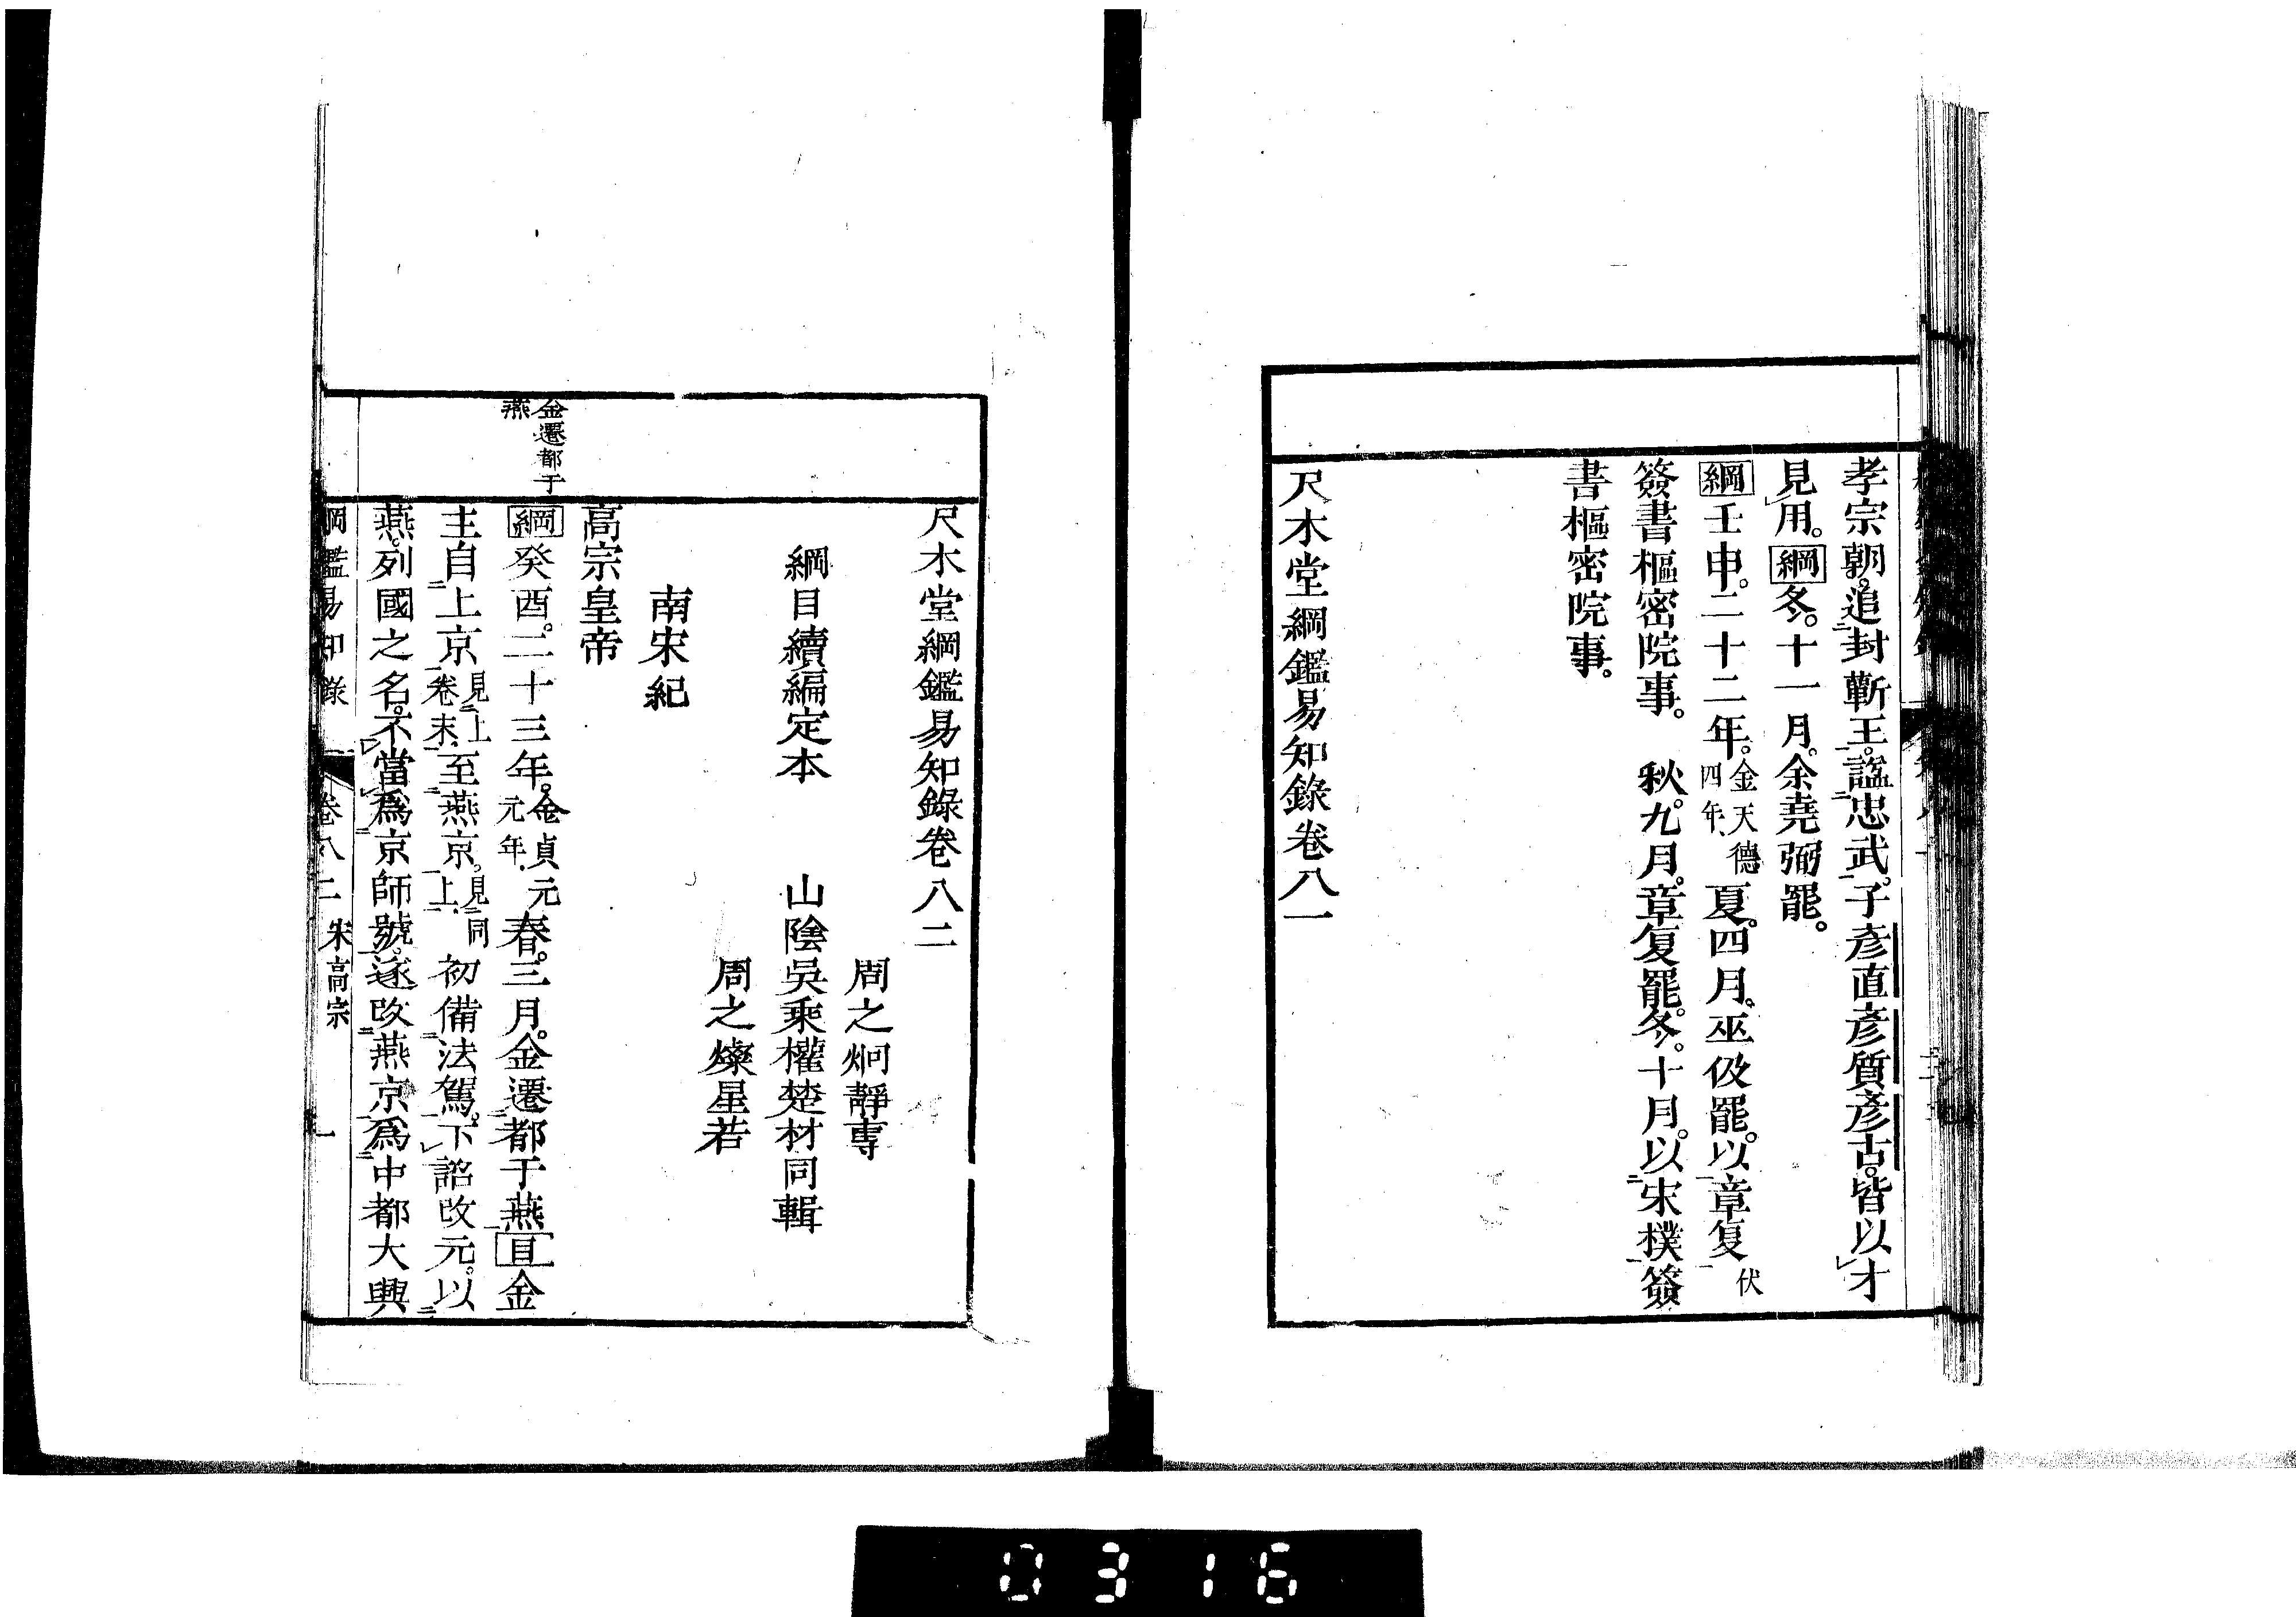 孝宗朝。追封蘄王。諡忠武。子彥直彥質彥古。皆以才
見用。綱冬。十一月。余堯弼罷。
綱壬申。二十二年。金天德四年、夏。四月。巫伋罷。以章复伏
簽書樞密院事。秋。九月。章复罷。冬。十月。以宋樸簽
書樞密院事。
尺木堂綱鑑易知錄卷八一
尺木堂綱鑑易知錄卷八二
周之炯靜專
綱目續編定本 山陰吳乘權楚材同輯
周之燦星若
南宋紀
高宗皇帝
金遷都于
燕
綱癸酉。二十三年。金貞元元年、春。三月。金遷都于燕目金
主自上京見上卷末、至燕京。見同上、初備法駕。下詔改元。以
燕。列國之名。不當爲京師號。遂改燕京爲中都大興
綱鑑易知錄 卷八二 宋高宗 一
0316